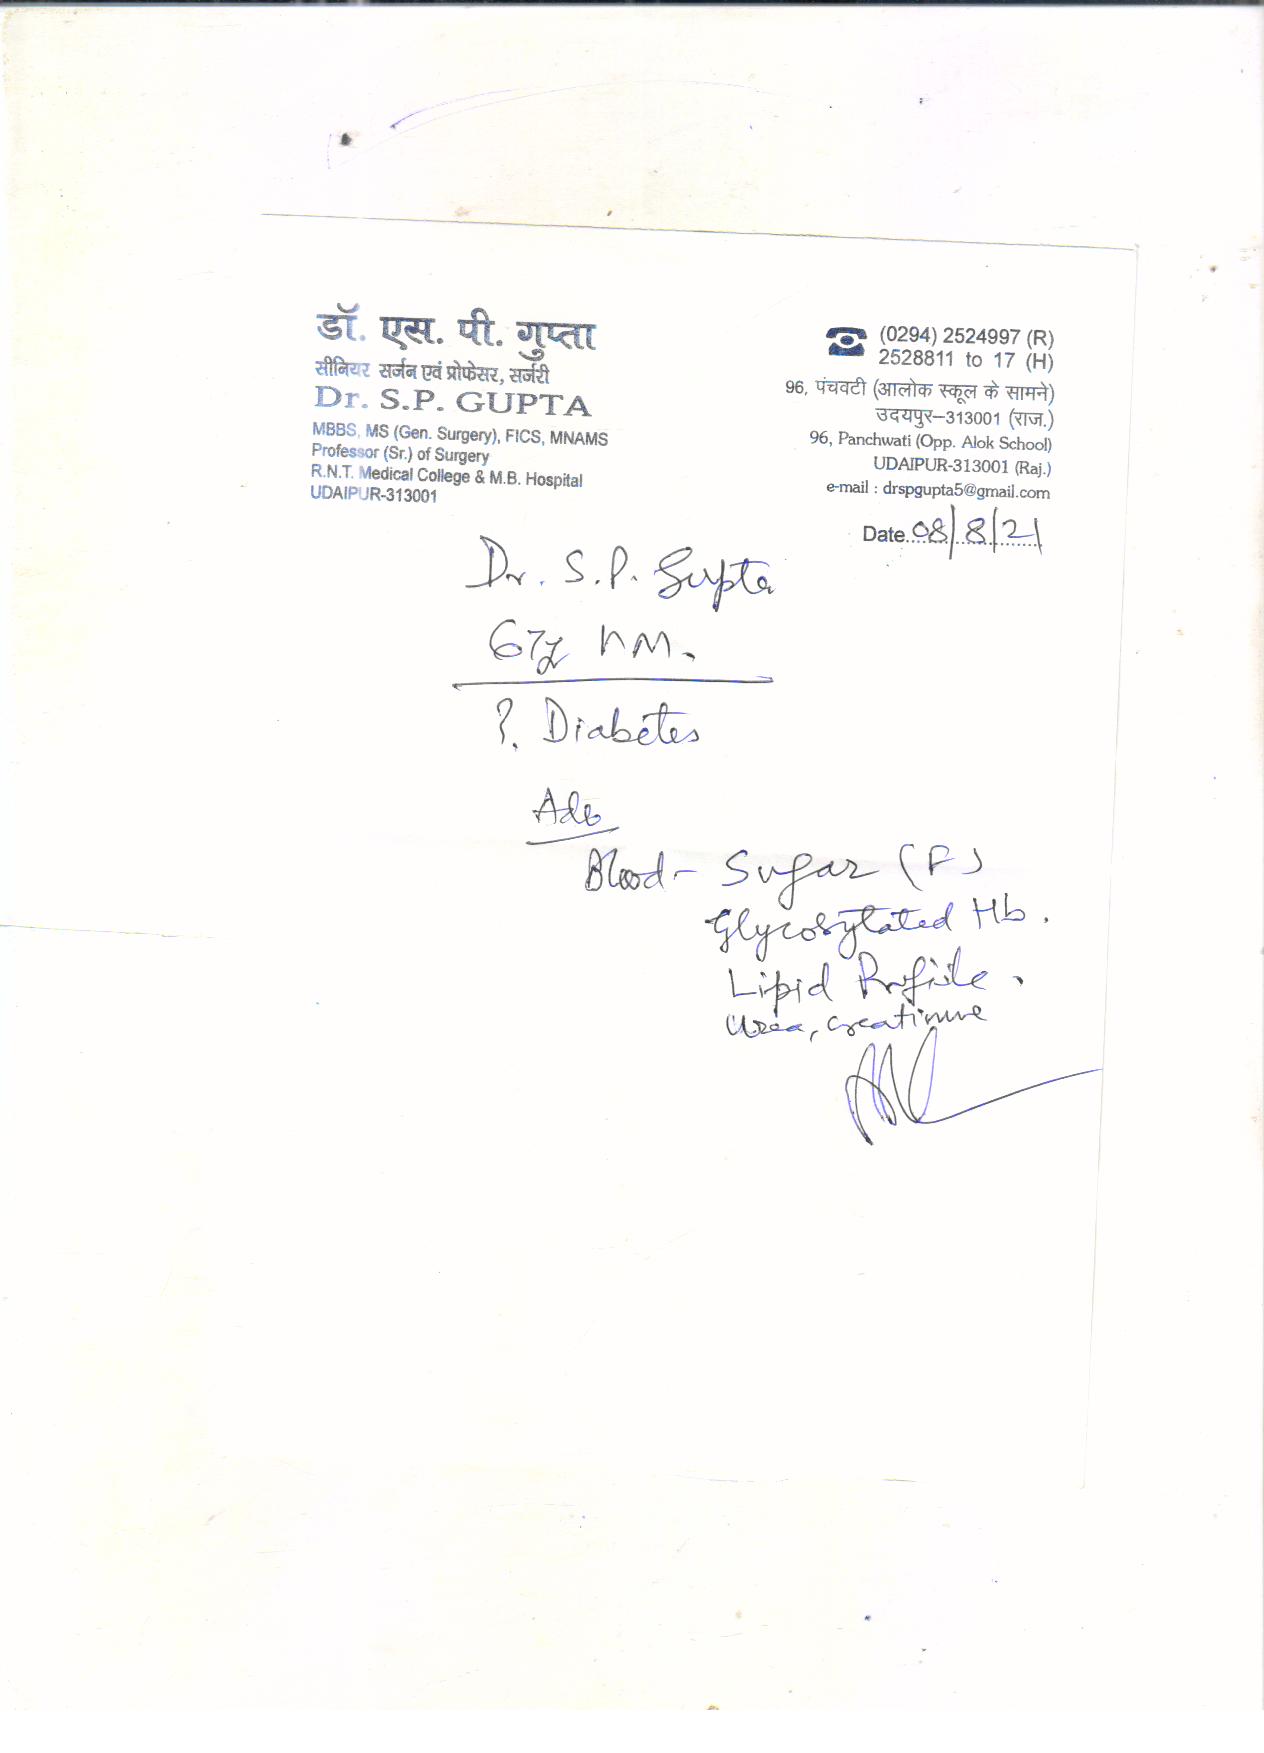 डॉ. एस. पी. गुप्ता
सीनियर सर्जन एवं प्रोफेसर, सर्जरी
Dr. S.P. GUPTA
MBBS, MS (Gen. Surgery), FICS, MNAMS
Professor (Sr.) of Surgery
R.N.T. Medical College & M.B. Hospital
UDAIPUR-313001
(0294) 2524997 (R)
2528811 to 17 (H)
96, पंचवटी (आलोक स्कूल के सामने)
उदयपुर–313001 (राज.)
96, Panchwati (Opp. Alok School)
UDAIPUR-313001 (Raj.)
e-mail : drspgupta5@gmail.com
Date 08/8/21
Dr. S.P. Gupta
67y
?. Diabetes
Blood - Sugar (F)
Glycosylated Hb.
Lipid Profile.
Urea, Creatinine